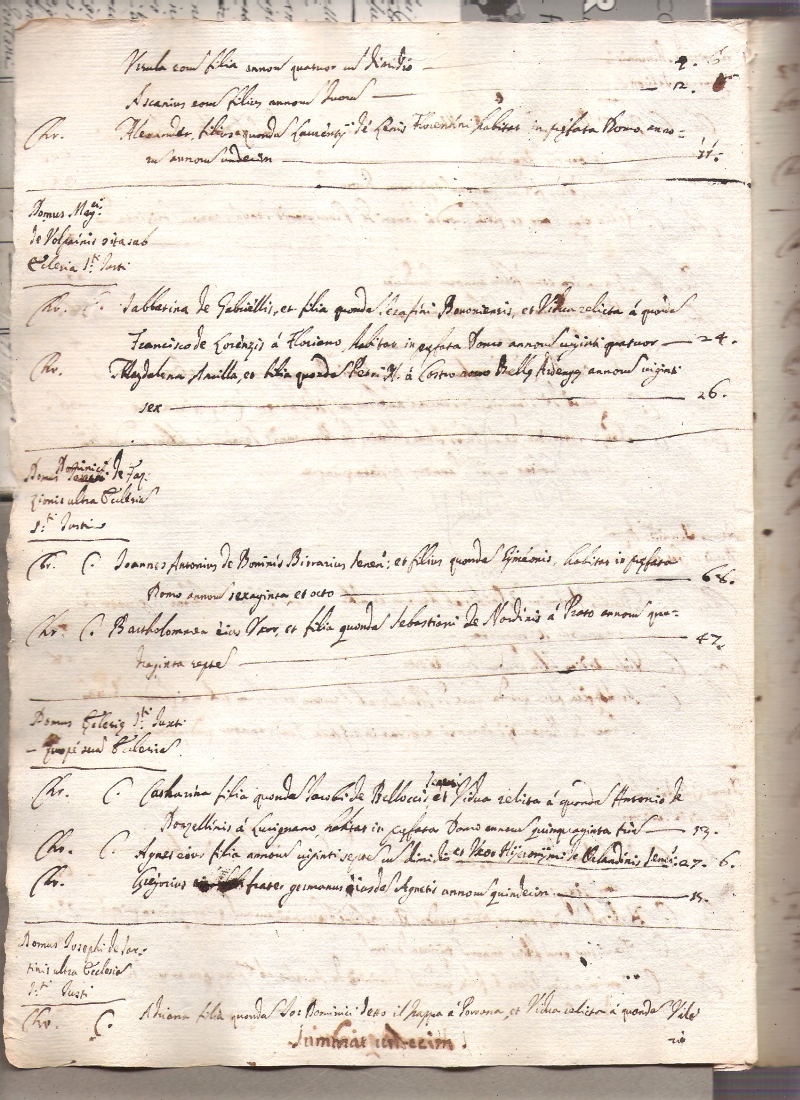 Ursula eius filia annorum quatuor cum dimidio 4. 6
Ascanius eius filius annorum duorum 2.
Chr. Alexander, filius quondam Laurentij de Lenis Florentini habitat in praefata Domo, anno-
rum annorum undecim 11.
Domus Mag.ci
de Volpinis sita sub
Ecclesia S.ti Justi
Chr. C. Sabbatina de Gabriellis, et filia quondam Serafini Bononiensis, et Vidua relicta á quondam
Francisco de Lorenzis á Floriano habitat in praefata Domo annorum viginti quatuor 24.
Chr. Magdalena Ancilla, et filia quondam Petri á Castro annorum viginti
sex 26.
Domus Dominici de
ultra Ecclesiam
S.ti Justi
Chr. C. Joannes Antonius de Boninis Birrarius Senen; et filius quondam Simeonis, habitat in praefata
Domo annorum sexaginta et octo 68.
Chr. C. Bartholomaea eius Uxor, et filia quondam Sebastiani de Nardinis á Prato annorum qua-
draginta septem 47.
Domus Ecclesiae S.ti Justi
prope suam Ecclesiam
Chr. C. Catharina filia quondam Jacobi de Belloccis, et Vidua relicta á quondam Antonio de
Donzellinis á Lucignano, habitat in praefata Domo annorum quinquaginta trium 53.
Chr. C. Agnes eius filia annorum viginti septem cum dimidio et Uxor Hijeronijmi de Orlandinis Senen: 27. 6.
Chr. Gregorius frater germanus eiusdem Agnetis annorum quindecim 15.
Domus Josephi de Sar-
tinis ultra Ecclesiam
S.ti Justi
Chr. C. Adriana filia quondam Jo: Dominici detto il Pappa á, et Vidua relicta á quondam Vita
Summat undecim.